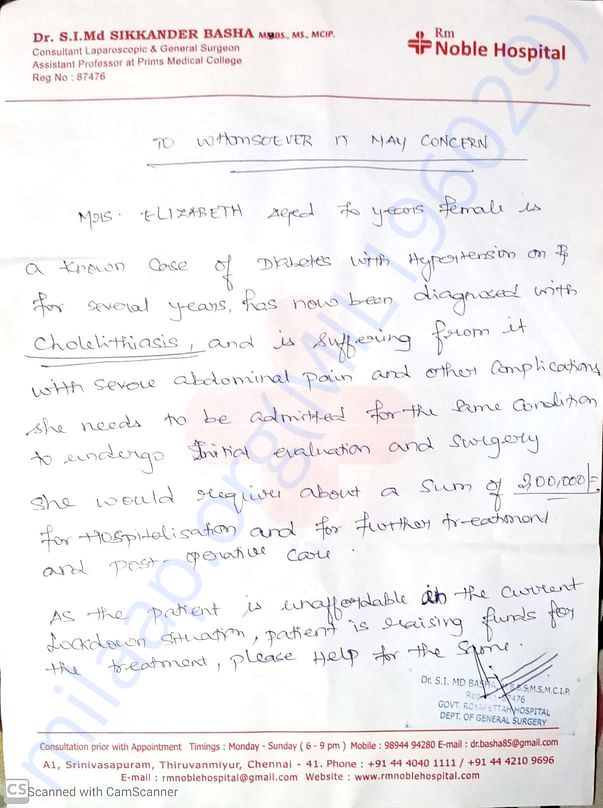 Dr. S.I.Md SIKKANDER BASHA MBBS., MS., MCIP.
Consultant Laparoscopic & General Surgeon
Assistant Professor at Prims Medical College
Reg No : 87476
Rm
Noble Hospital
TO WHOMSOEVER IT MAY CONCERN
Mrs. ELIZABETH aged years female is
a known case of Diabetes with Hypertension on
for several years, has now been diagnosed with
Cholelithiasis, and is suffering from it
with severe abdominal pain and other complications
she needs to be admitted for the same condition
to undergo Initial evaluation and surgery
she would require about a sum of 200,000/-
for Hospitalisation and for further treatment
and post-operative care.
As the patient is unaffordable in the current
lockdown situation, patient is raising funds for
the treatment, please help for the same.
Dr. S.I. MD BASHA, M.B.B.S, M.S, M.C.I.P.
Reg 87476
GOVT. ROYAPETTAH HOSPITAL
DEPT. OF GENERAL SURGERY
Consultation prior with Appointment Timings : Monday - Sunday ( 6 - 9 pm ) Mobile : 98944 94280 E-mail : dr.basha85@gmail.com
A1, Srinivasapuram, Thiruvanmiyur, Chennai - 41. Phone : +91 44 4040 1111 / +91 44 4210 9696
E-mail : rmnoblehospital@gmail.com Website : www.rmnoblehospital.com
CS Scanned with CamScanner
milaap.org(MIL196029)